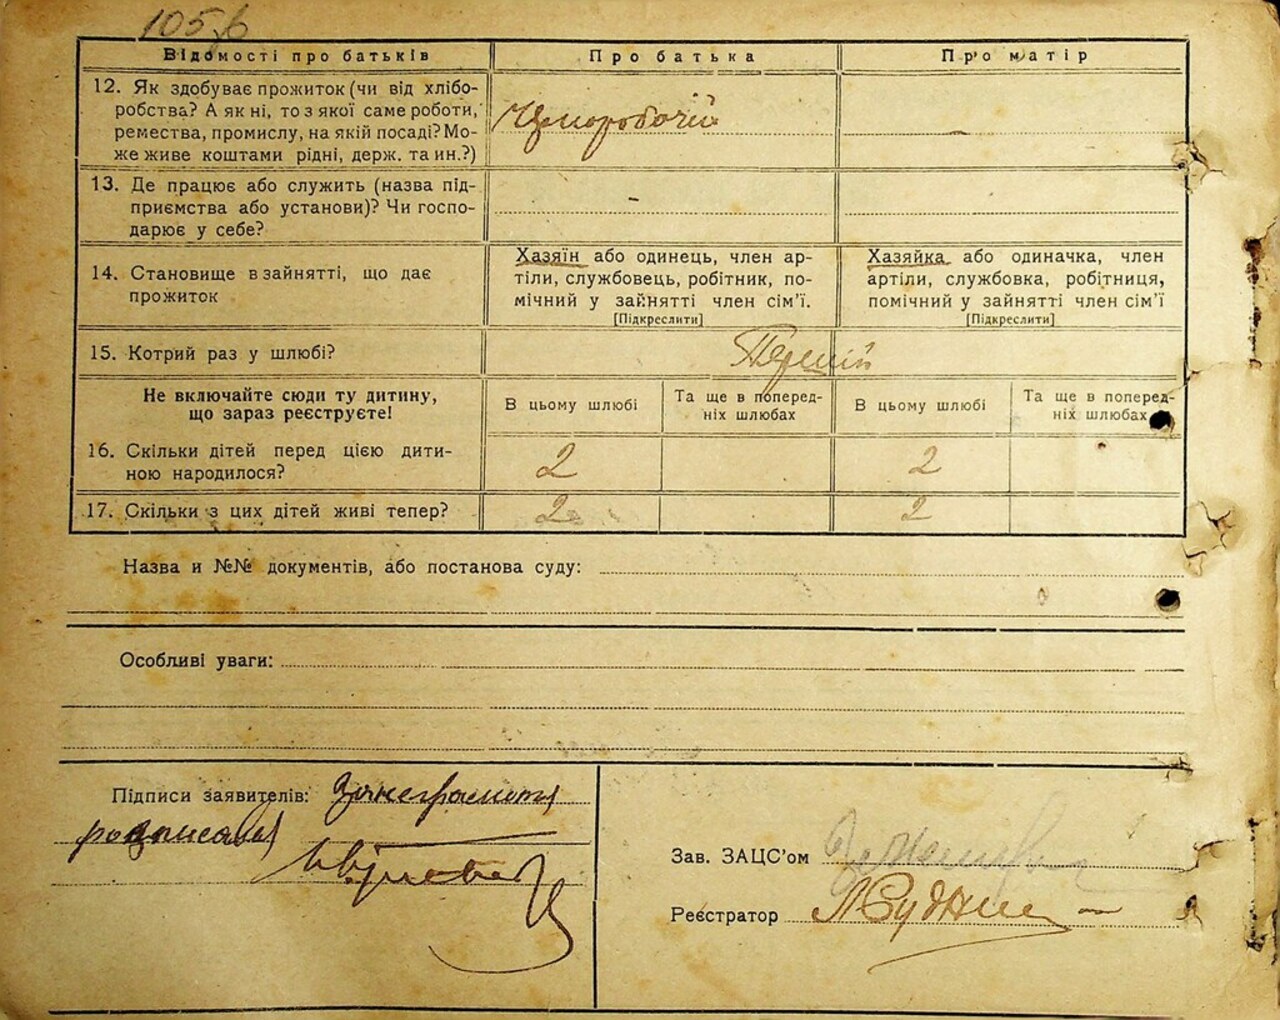 105
Відомості про батьків
Про батька
Про матір
12. Як здобуває прожиток (чи від хлібо-
робства? А як ні, то з якої саме роботи,
ремества, промислу, на якій посаді? Мо-
же живе коштами рідні, держ. та ин.?)
Чорноробочий
—
13. Де працює або служить (назва під-
приємства або установи)? Чи госпо-
дарює у себе?
-
14. Становище в зайнятті, що дає
прожиток
Хазяїн або одинець, член ар-
тіли, службовець, робітник, по-
мічний у зайнятті член сім’ї.
[Підкреслити]
Хазяйка або одиначка, член
артіли, службовка, робітниця,
помічний у зайнятті член сім’ї
[Підкреслити]
15. Котрий раз у шлюбі?
Перший
Не включайте сюди ту дитину,
що зараз реєструєте!
В цьому шлюбі
Та ще в поперед-
ніх шлюбах
В цьому шлюбі
Та ще в поперед-
ніх шлюбах
16. Скільки дітей перед цією дити-
ною народилося?
2
2
17. Скільки з цих дітей живі тепер?
2
2
Назва и №№ документів, або постанова суду:
Особливі уваги:
Підписи заявителів: За неграмотн
розписався
Зав. ЗАЦС’ом
Реєстратор